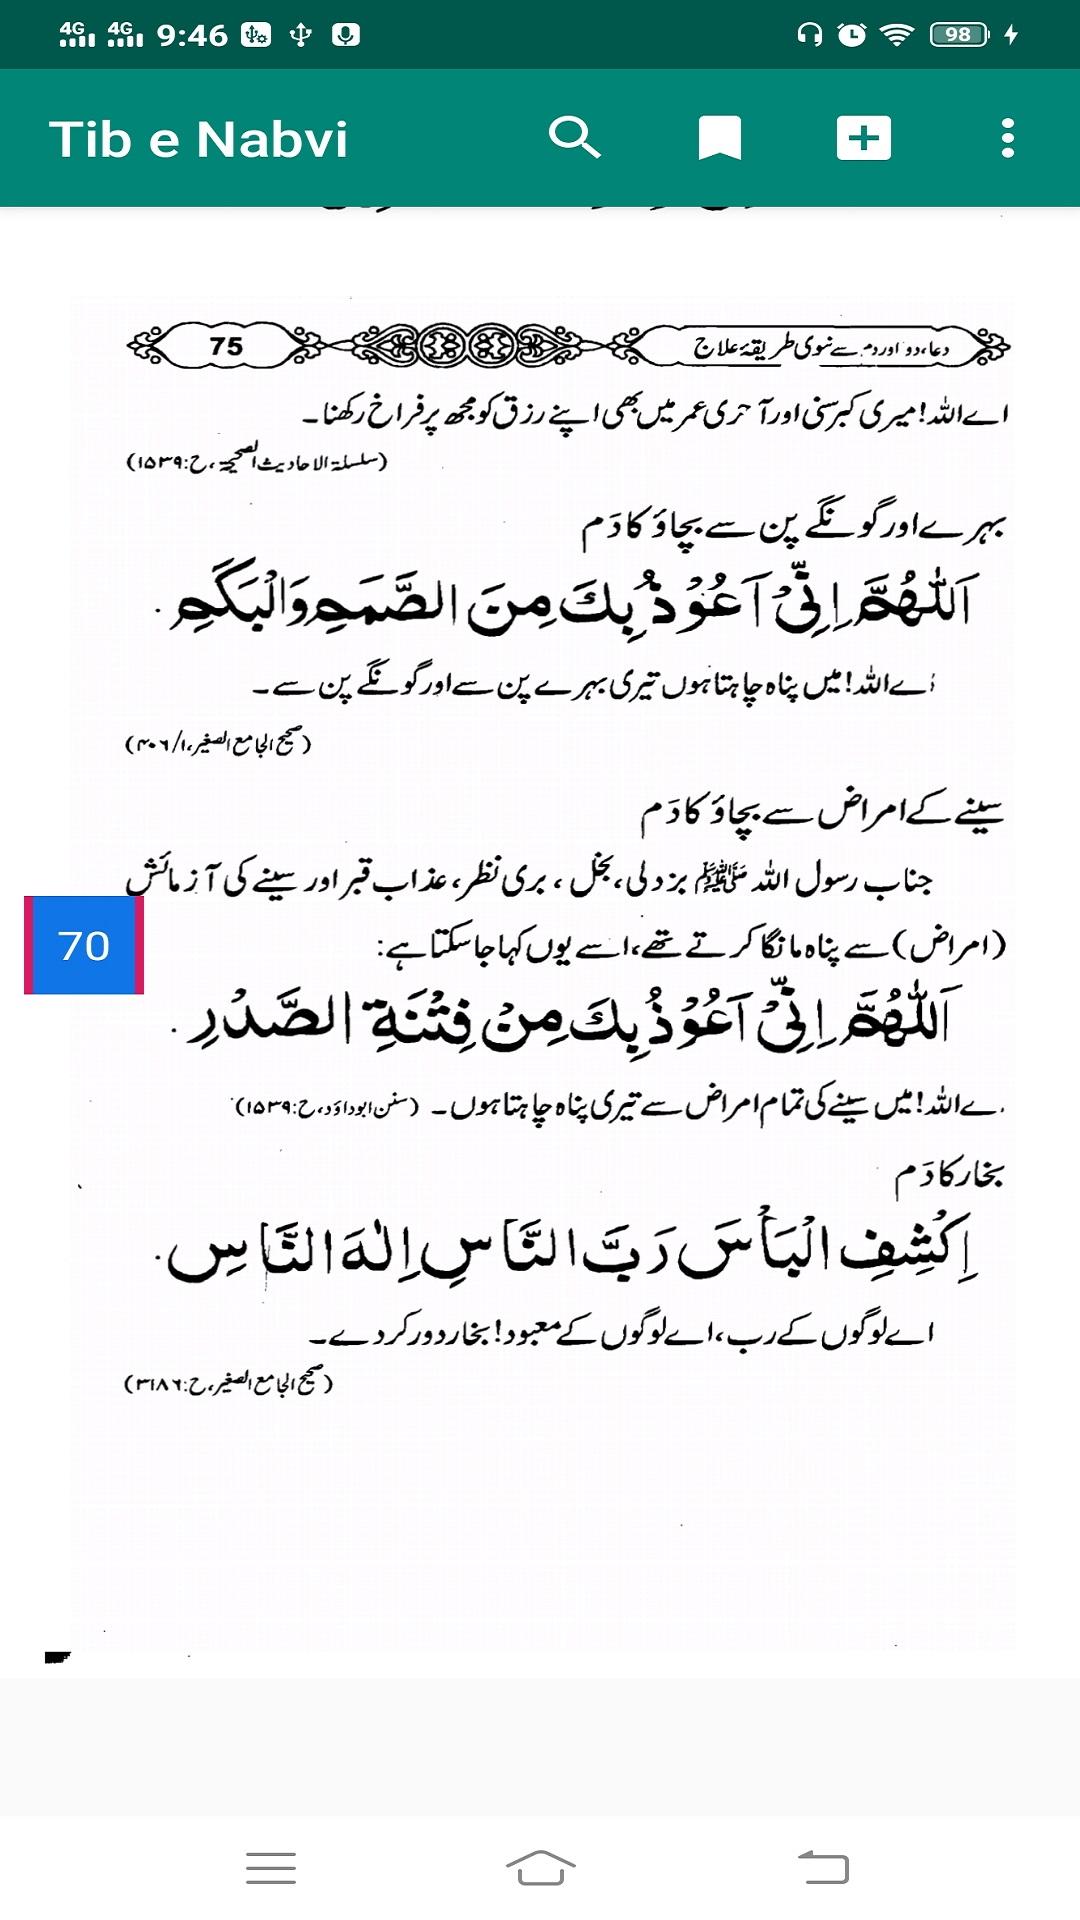 4G 4G 9:46 98
Tib e Nabvi
75 دعا، دوا اور دم سے نبوی طریقۂ علاج
اے اللہ! میری کبر سنی اور آخری عمر میں بھی اپنے رزق کو مجھ پر فراخ رکھنا۔
(سلسلۃ الاحادیث الصحیحۃ، ح:۱۵۳۹)
بہرے اور گونگے پن سے بچاؤ کا دَم
اَللّٰهُمَّ اِنِّىْٓ اَعُوْذُ بِكَ مِنَ الصَّمَمِ وَالْبَكَمِ.
اے اللہ! میں پناہ چاہتا ہوں تیری بہرے پن سے اور گونگے پن سے۔
(صحیح الجامع الصغیر، ۱/۴۰۶)
سینے کے امراض سے بچاؤ کا دَم
جناب رسول اللہ ﷺ بزدلی، بخل، بری نظر، عذاب قبر اور سینے کی آزمائش
70
(امراض) سے پناہ مانگا کرتے تھے، اسے یوں کہا جا سکتا ہے:
اَللّٰهُمَّ اِنِّىْٓ اَعُوْذُ بِكَ مِنْ فِتْنَةِ الصَّدْرِ.
اے اللہ! میں سینے کی تمام امراض سے تیری پناہ چاہتا ہوں۔ (سنن ابو داؤد، ح:۱۵۳۹)
بخار کا دَم
اِكْشِفِ الْبَأْسَ رَبَّ النَّاسِ اِلٰهَ النَّاسِ.
اے لوگوں کے رب، اے لوگوں کے معبود! بخار دور کر دے۔
(صحیح الجامع الصغیر، ح:۳۱۸۶)